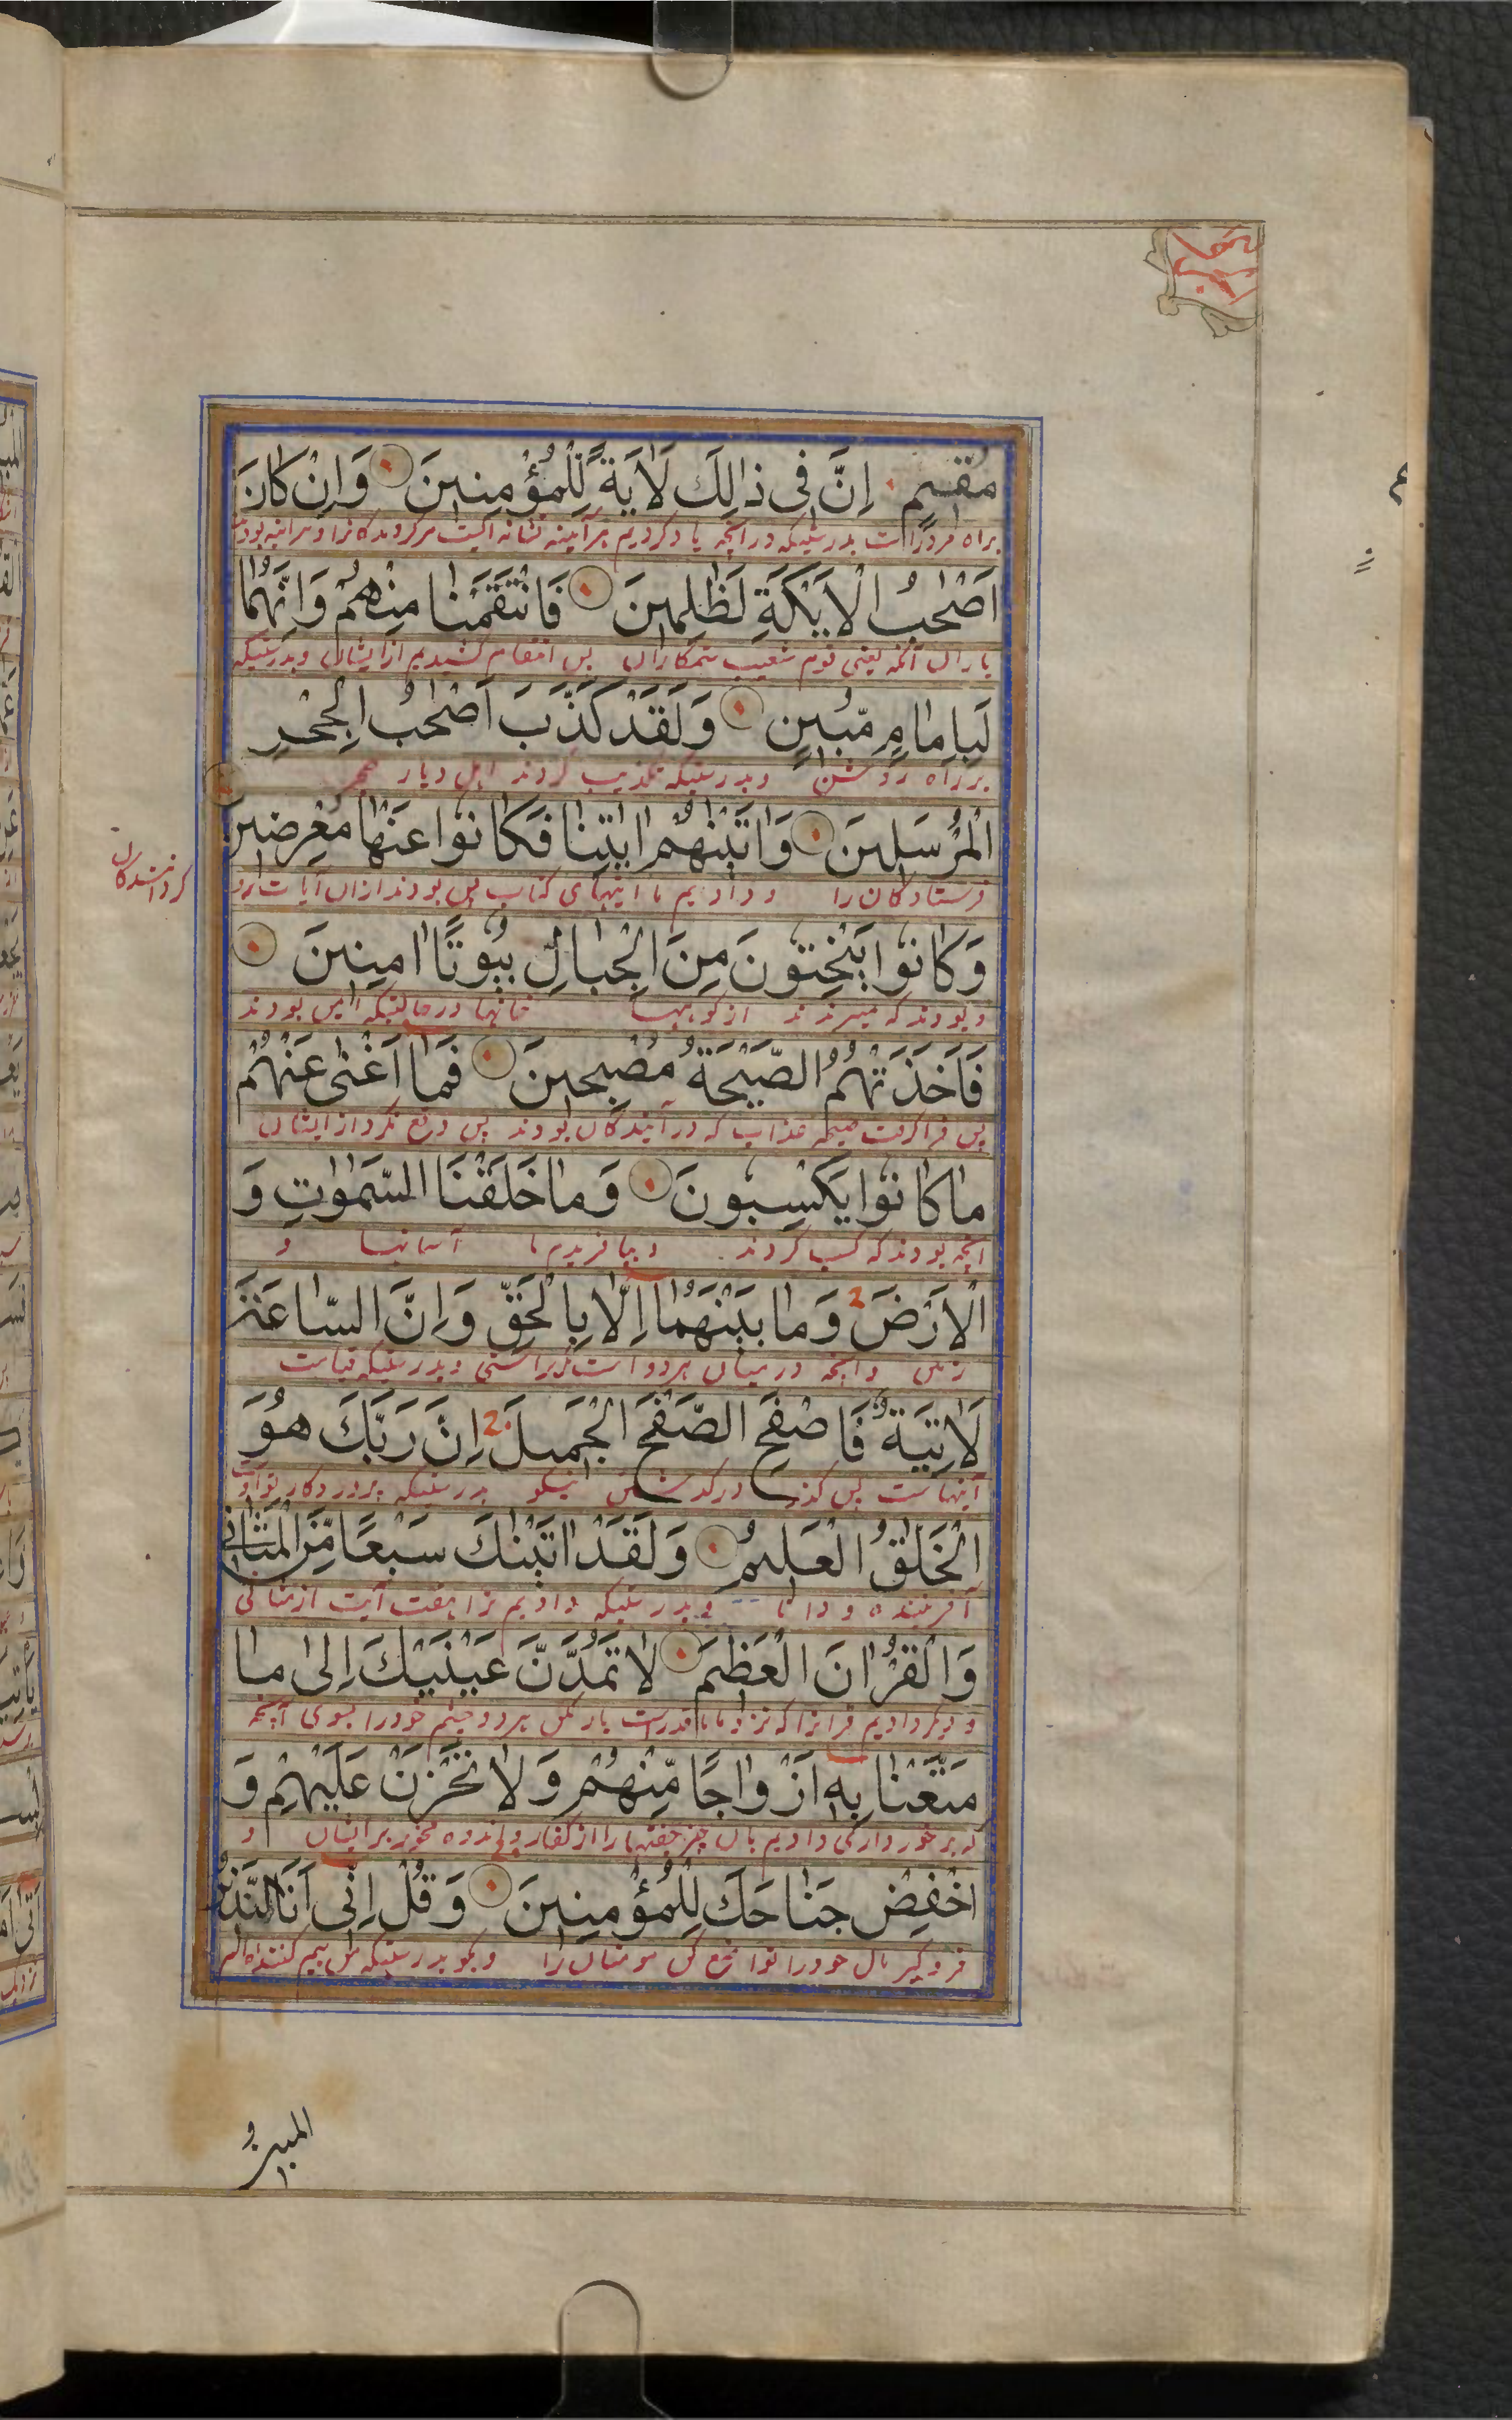 مُقِيمٍ اِنَّ فِي ذٰلِكَ لَاٰيَةً لِلْمُؤْمِنِينَ وَاِنْ كَانَ
براه مردم است بدرستیکه در آنچه یاد کردیم هر آینه نشانه ایست مر گرویدگانرا و هر آینه بودند
اَصْحٰبُ الْاَيْكَةِ لَظٰلِمِينَ فَانْتَقَمْنَا مِنْهُمْ وَاِنَّهُمَا
یاران آیکه یعنی قوم شعیب ستمکاران پس انتقام کشیدیم از ایشان و بدرستیکه
لَبِاِمَامٍ مُّبِينٍ وَلَقَدْ كَذَّبَ اَصْحٰبُ الْحِجْرِ
بر راه روشن و بدرستیکه تکذیب کردند اهل دیار حجر
الْمُرْسَلِينَ وَاٰتَيْنٰهُمْ اٰيٰتِنَا فَكَانُوا عَنْهَا مُعْرِضِينَ
فرستادگان را و دادیم ما اینهای کتاب پس بودند از آن آیات رو
گردانندگان
وَكَانُوا يَنْحِتُونَ مِنَ الْجِبَالِ بُيُوتًا اٰمِنِينَ
و بودند که میبریدند از کوهها خانها در حالتیکه ایمن بودند
فَاَخَذَتْهُمُ الصَّيْحَةُ مُصْبِحِينَ فَمَا اَغْنٰى عَنْهُمْ
پس فرا گرفت صیحه عذاب که در آیندگان بودند پس دفع نکرد از ایشان
مَا كَانُوا يَكْسِبُونَ وَمَا خَلَقْنَا السَّمٰوٰتِ وَ
آنچه بودند که کسب کردند و نیافریدیم ما آسمانها و
الْاَرْضَ وَمَا بَيْنَهُمَا اِلَّا بِالْحَقِّ وَاِنَّ السَّاعَةَ
زمین و آنچه در میان هر دو است مگر براستی و بدرستیکه قیامت
لَاٰتِيَةٌ فَاصْفَحِ الصَّفْحَ الْجَمِيلَ اِنَّ رَبَّكَ هُوَ
آینده است پس گذر در گذشتن نیکو بدرستیکه پروردگار تو اوست
الْخَلّٰقُ الْعَلِيمُ وَلَقَدْ اٰتَيْنٰكَ سَبْعًا مِّنَ الْمَثَانِي
آفریننده و دانا و بدرستیکه دادیم ترا هفت آیت از مثانی
وَالْقُرْاٰنَ الْعَظِيمَ لَا تَمُدَّنَّ عَيْنَيْكَ اِلٰى مَا
و دیگر دادیم قرآنرا که نزد ما با قدر است باز مکن هر دو چشم خود را بسوی آنچه
مَتَّعْنَا بِهِ اَزْوَاجًا مِّنْهُمْ وَلَا تَحْزَنْ عَلَيْهِمْ وَ
که برخورداری دادیم بآن چیز جفتها را از کفار و اندوه مخور بر ایشان و
اخْفِضْ جَنَاحَكَ لِلْمُؤْمِنِينَ وَقُلْ اِنِّي اَنَا النَّذِيرُ
فرو گیر بال خود را تواضع کن مومنان را و بگو بدرستیکه من بیم کننده ام
المبين